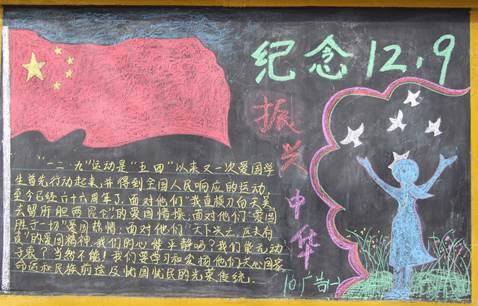 纪念12.9
振兴中华
"一二·九"运动是"五四"以来又一次爱国学
生首先行动起来,并得到全国人民响应的运动,
至今已经六十六周年了,面对他们"我直横刀向天笑
去留肝胆两昆仑"的爱国情操,面对他们"爱国
胜于一切"爱国热情;面对他们"天下兴亡,匹夫有
责"的爱国精神,我们的心能平静吗?我们能无动
于衷?当然不能!我们要学习和发扬他们关心国家
命运和民族前途及忧国忧民的光荣传统.
10广告一